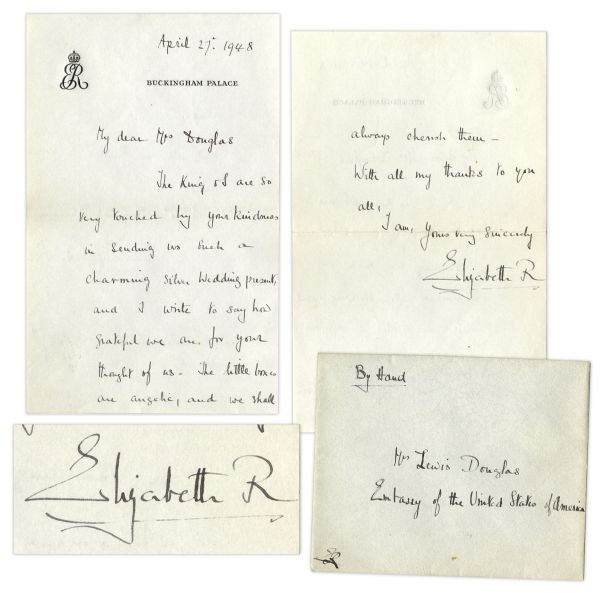 April 27. 1948
ER
BUCKINGHAM PALACE
My dear Mrs Douglas
The King & I are so
very touched by your kindness
in sending us such a
charming Silver Wedding present,
and I write to say how
grateful we are for your
thought of us - The little boxes
are angelic, and we shall
always cherish them -
With all my thanks to you
all,
I am, Yours very sincerely
Elizabeth R
By Hand
Mrs Lewis Douglas
Embassy of the United States of America
Elizabeth R